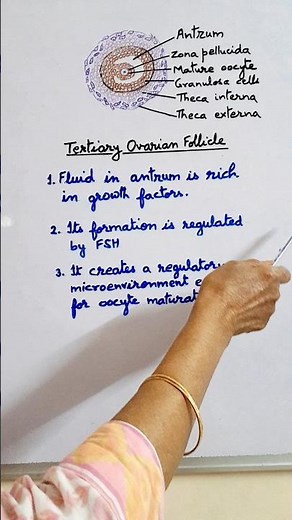 Antrum
Zona pellucida
Mature oocyte
Granulosa cells
Theca interna
Theca externa
Tertiary Ovarian Follicle
1. Fluid in antrum is rich
in growth factors.
2. Its formation is regulated
by FSH
3. It creates a
microenvironment
for oocyte